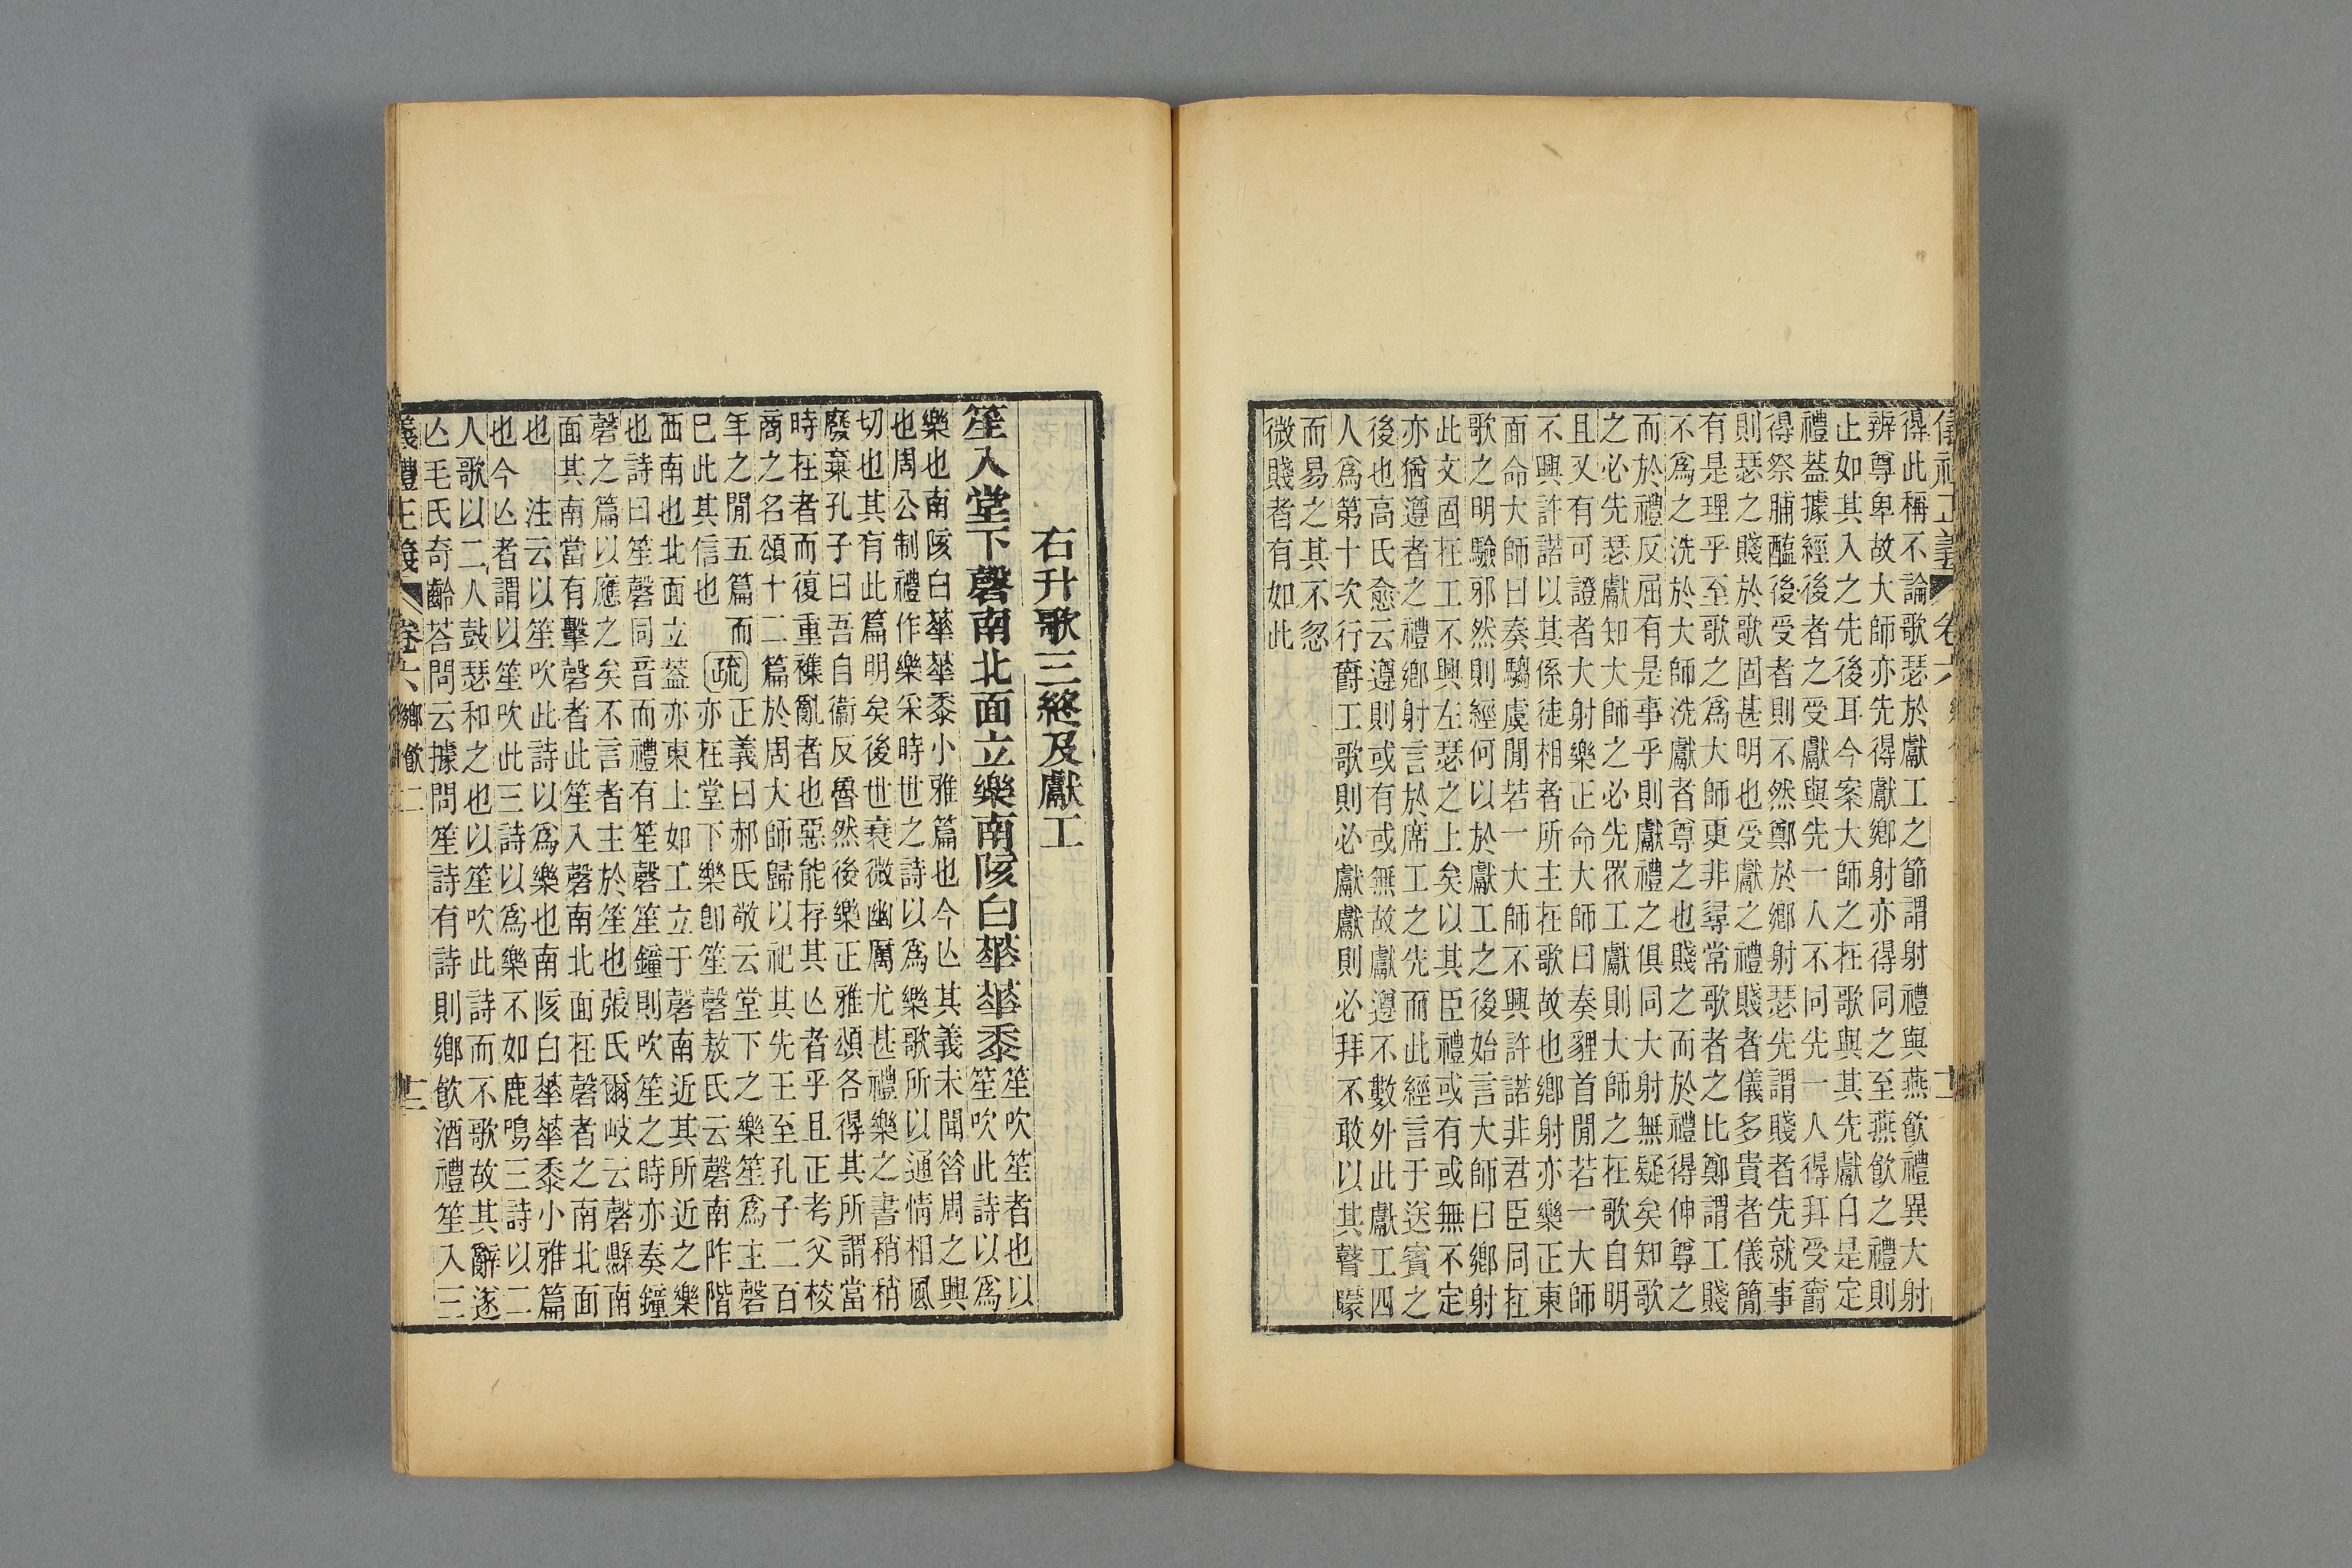 得此稱不論歌瑟於獻工之節謂射禮與燕飮禮異大射
辨尊卑故大師亦先得獻鄉射亦得同之至燕飮之禮則
止如其入之先後耳今案大師之在歌與其先獻自是定
禮葢據經後者之受獻與先一人不同先一人得拜受爵
得祭脯醢後受者則不然鄭於鄉射瑟先謂賤者先就事
則瑟之賤於歌固甚明也受獻之禮賤者儀多貴者儀簡
有是理乎至歌之爲大師更非尋常歌者之比鄭謂工賤
不爲之洗於大師洗獻者尊之也賤之而於禮得伸尊之
而於禮反屈有是事乎則獻禮之俱同大射無疑矣知歌
之必先瑟獻知大師之必先眾工獻則大師之在歌自明
且又有可證者大射樂正命大師曰奏貍首閒若一大師
不興許諾以其係徒相者所主在歌故也鄉射亦樂正東
面命大師曰奏騶虞閒若一大師不興許諾非君臣同在
歌之明驗邪然則經何以於獻工之後始言大師曰鄉射
此文固在工不興左瑟之上矣以其臣禮或有或無不定
亦猶遵者之禮鄉射言於席工之先而此經言于送賓之
後也高氏愈云遵則或有或無故獻遵不數外此獻工四
人爲第十次行爵工歌則必獻獻則必拜不敢以其瞽矇
而易之其不忽
微賤者有如此
右升歌三終及獻工
笙入堂下磬南北面立樂南陔白華華黍笙吹笙者也以
笙吹此詩以爲
樂也南陔白華華黍小雅篇也今亾其義未聞昝周之興
也周公制禮作樂采時世之詩以爲樂歌所以通情相風
切也其有此篇明矣後世衰微幽厲尤甚禮樂之書稍稍
廢棄孔子曰吾自衞反魯然後樂正雅頌各得其所謂當
時在者而復重襍亂者也惡能存其亾者乎且正考父校
商之名頌十二篇於周大師歸以祀其先王至孔子二百
年之閒五篇而
已此其信也
疏正義曰郝氏敬云堂下之樂笙爲主磬
亦在堂下樂卽笙磬敖氏云磬南阼階
西南也北面立葢亦東上如工立于磬南近其所近之樂
也詩曰笙磬同音而禮有笙磬笙鐘則吹笙之時亦奏鐘
磬之篇以應之矣不言者主於笙也張氏爾岐云磬縣南
面其南當有擊磬者此笙入磬南北面在磬者之南北面
也　注云以笙吹此詩以爲樂也南陔白華華黍小雅篇
也今亾者謂以笙吹此三詩以爲樂不如鹿鳴三詩以二
人歌以二人鼓瑟和之也以笙吹此詩而不歌故其辭遂
亾毛氏奇齡荅問云據問笙詩有詩則鄉飮酒禮笙入三